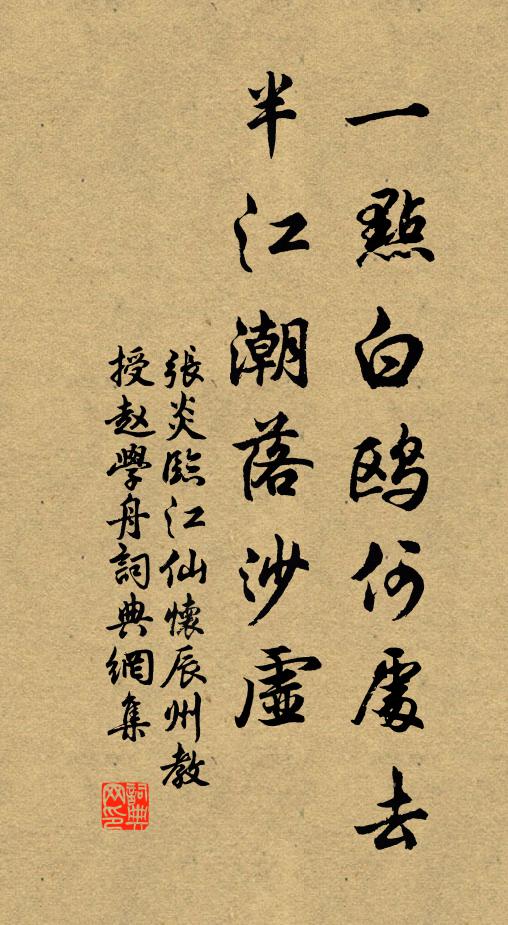 一點白鷗何處去
半江潮落沙虛
張炎臨江仙懷辰州教
授赵學舟詞典網集
詞典网印